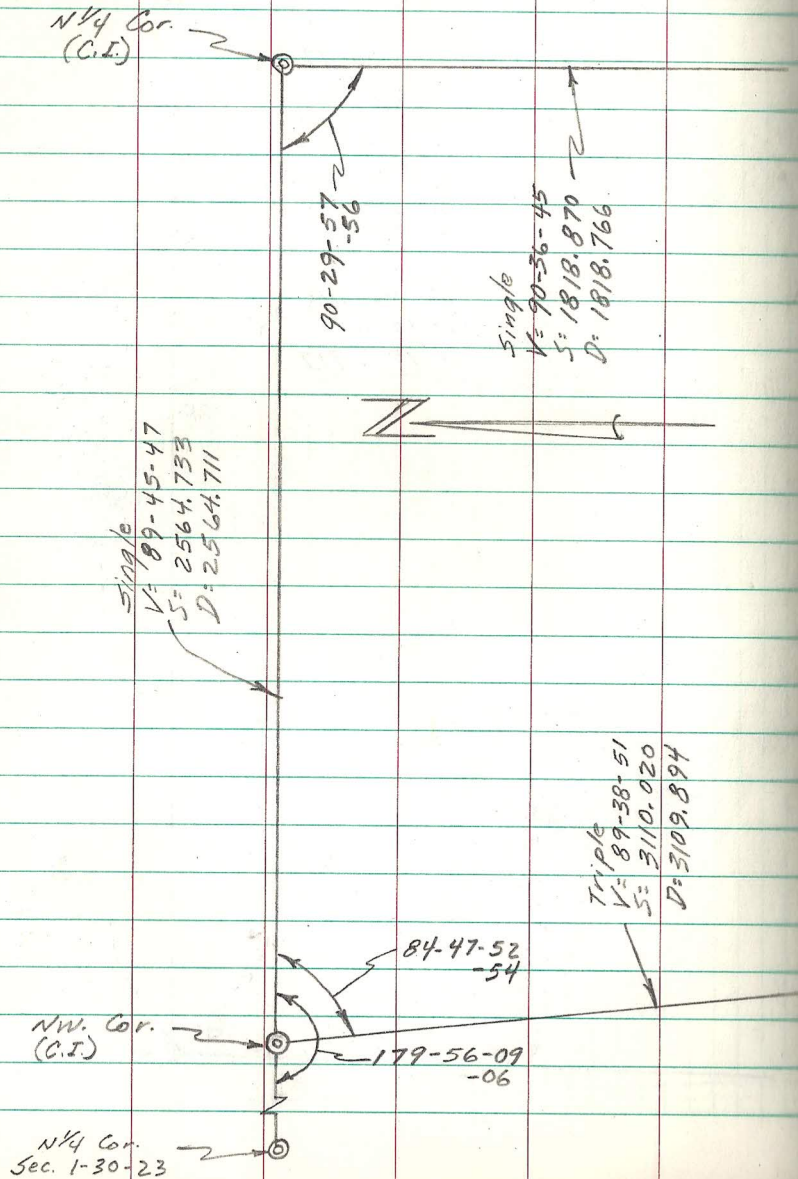 N 1/4 Cor.
(C.I.)
90-29-57
-56
Single
V= 90-36-45
S= 1818.870
D= 1818.766
Single
V= 89-45-47
S= 2564.733
D= 2564.711
Triple
V= 89-38-51
S= 3110.020
D= 3109.894
84-47-52
-54
NW. Cor.
(C.I.)
179-56-09
-06
N 1/4 Cor.
Sec. 1-30-23